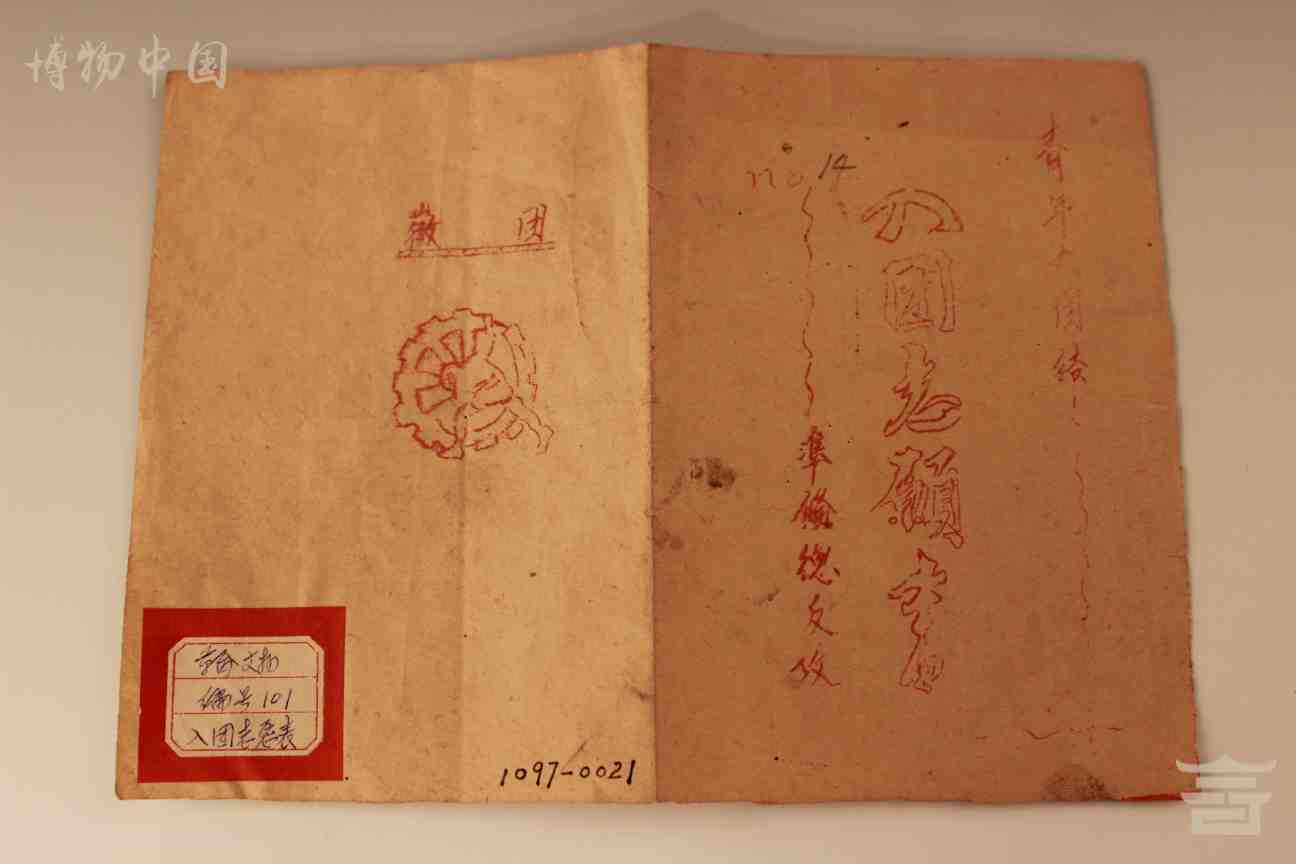 博物中国
青年入团
no 14
入團志願書
準備总反攻
团徽
革命文物
编号101
入团志愿表
1097-0021